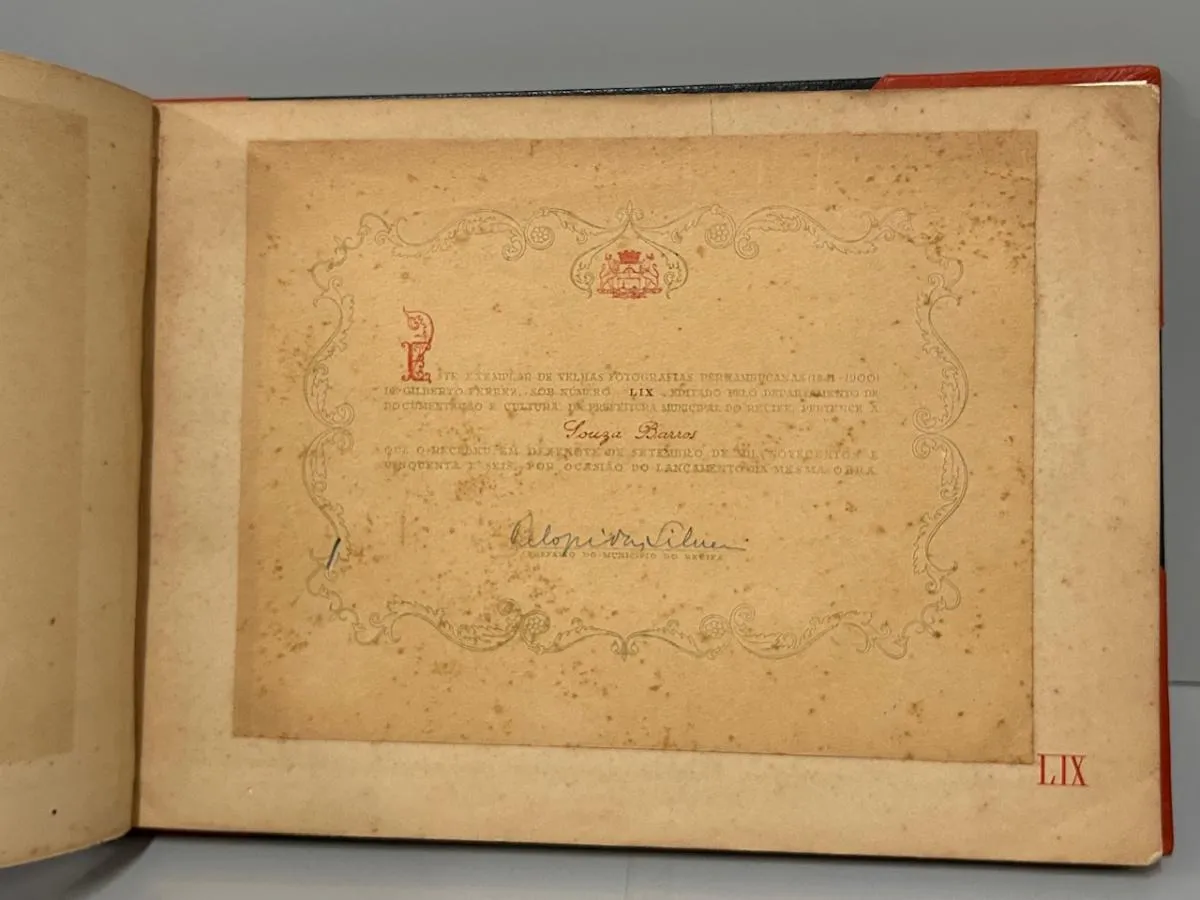 ESTE EXEMPLAR DE VELHAS FOTOGRAFIAS PERNAMBUCANAS (1851-1900)
DE GILBERTO FERREZ, SOB NÚMERO LIX, EDITADO PELO DEPARTAMENTO DE
DOCUMENTAÇÃO E CULTURA DA PREFEITURA MUNICIPAL DO RECIFE, PERTENCE À
Souza Barros
QUE O RECEBEU EM DEZENOVE DE SETEMBRO DE MIL NOVECENTOS E
CINQUENTA E SEIS, POR OCASIÃO DO LANÇAMENTO DA MESMA OBRA.
Pelopidas Silveira
PREFEITO DO MUNICIPIO DO RECIFE
LIX